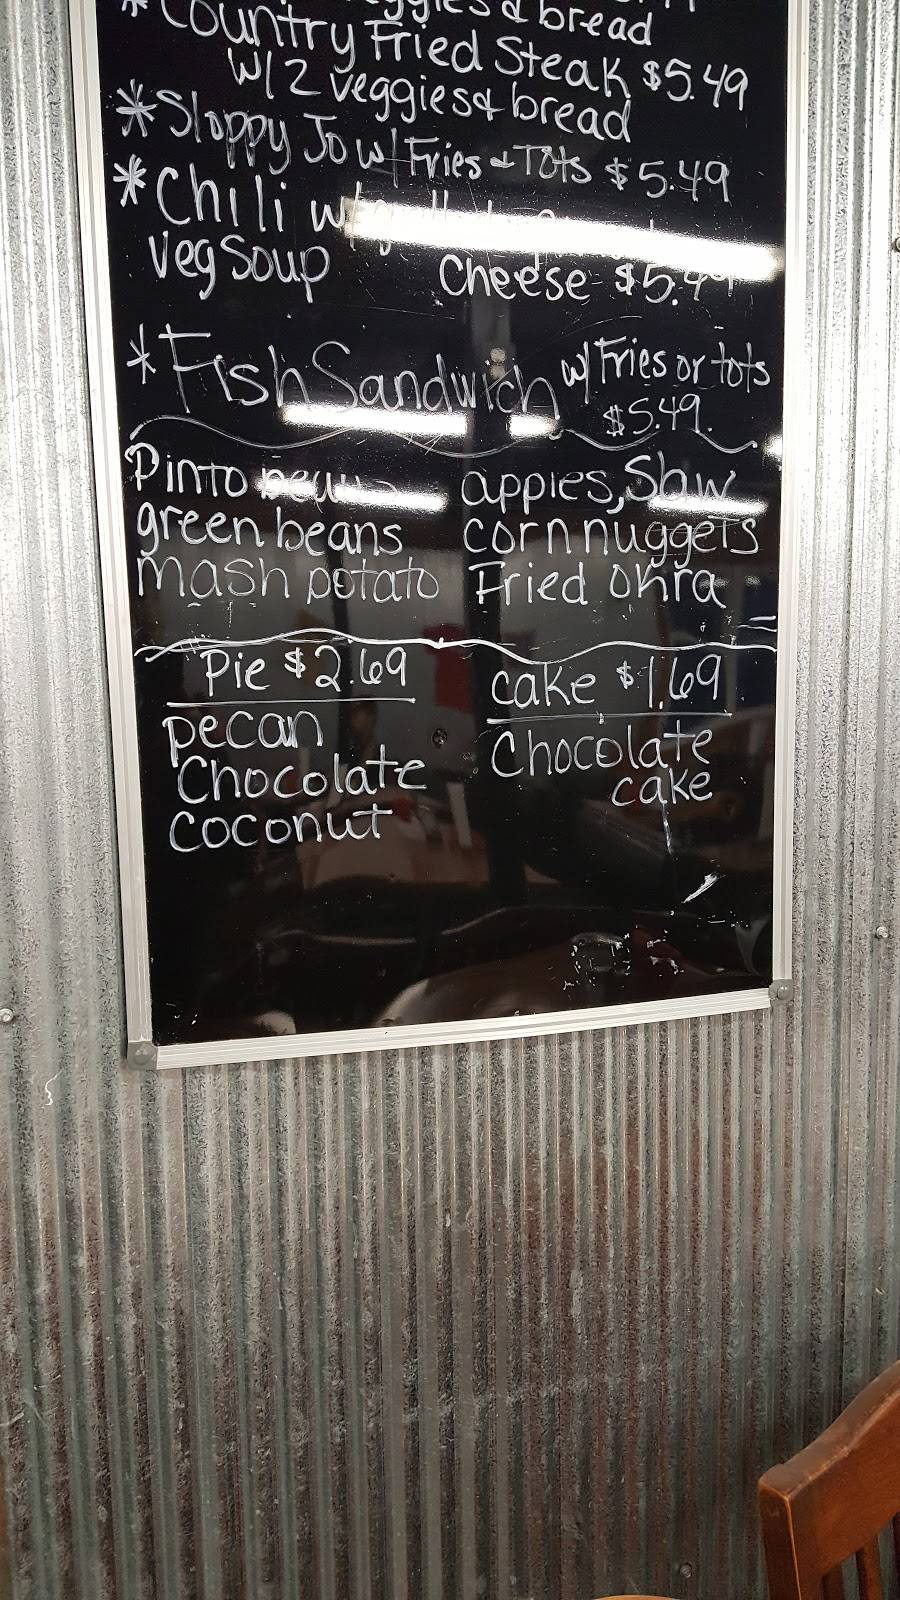 & bread
* Country Fried Steak $5.49
W/ 2 veggies & bread
* Sloppy Jo w/ Fries & Tots $5.49
* Chili w/
Veg Soup Cheese $5.49
* Fish Sandwich w/ Fries or tots
$5.49.
Pinto beans apples, Slaw
green beans corn nuggets
mash potato Fried Okra
Pie $2.69 cake $1.69
pecan Chocolate
Chocolate cake
coconut